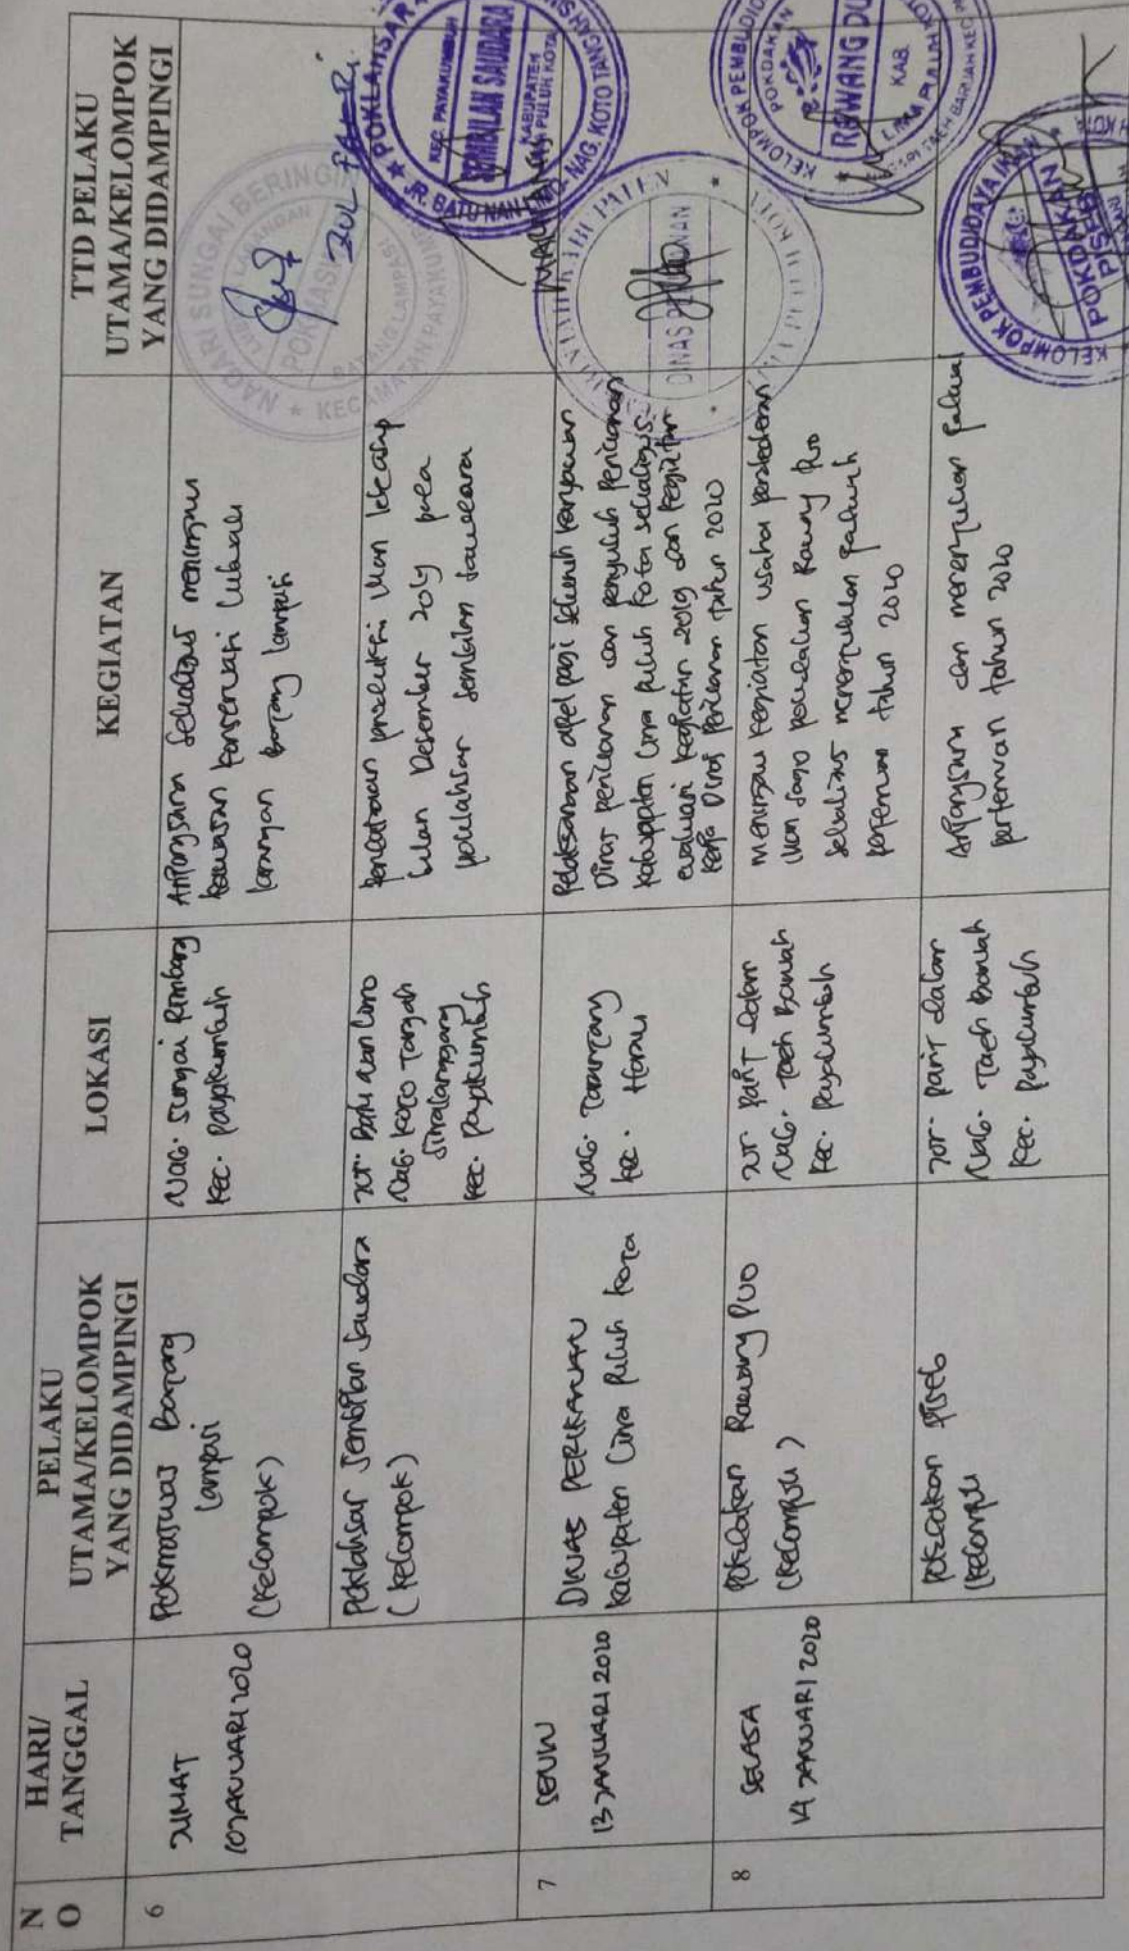 N
O
HARI/
TANGGAL
PELAKU
UTAMA/KELOMPOK
YANG DIDAMPINGI
LOKASI
KEGIATAN
TTD PELAKU
UTAMA/KELOMPOK
YANG DIDAMPINGI
6
JUMAT
10 JANUARI 2020
Pokmaswas Batang
Lampasi
(Kelompok)
NAG. Sungai Rimbang
Kec. Payakumbuh
Anjangsana sekaligus meninjau
kawasan konservasi lubuk
larangan Batang Lampasi
NAGARI SUNGAI BERINGIN
LUBUK LARANGAN
POKMASWAS
BATANG LAMPASI
KECAMATAN PAYAKUMBUH
Poklahsar Sembilan Saudara
(Kelompok)
Jor. Batu Nan Limo
Nag. Koto Tangah
Simalanggang
Kec. Payakumbuh
Pendataan produksi ikan lekakap
bulan Desember 2019 pada
poklahsar Sembilan Saudara
POKLAHSAR
KEC. PAYAKUMBUH
SEMBILAN SAUDARA
KABUPATEN
LIMA PULUH KOTA
JR. BATU NAN LIMO NAG. KOTO TANGAH
7
SENIN
13 JANUARI 2020
DINAS PERIKANAN
Kabupaten Lima Puluh Kota
NAG. Tarantang
Kec. Harau
Pelaksanaan apel pagi seluruh karyawan
Dinas perikanan dan penyuluh perikanan
Kabupaten Lima Puluh Kota sekaligus
evaluasi kegiatan 2019 dan kegiatan
kerja Dinas Perikanan tahun 2020
DINAS PERIKANAN
8
SELASA
14 JANUARI 2020
Pokdakan Rawang Duo
(Kelompok)
Jor. Parit Dalam
NAG. Taeh Baruah
Kec. Payakumbuh
meninjau kegiatan usaha pembederan
ikan sago pokdakan Rawang Duo
sekaligus mengumpulkan jadwal
pertemuan tahun 2020
KELOMPOK PEMBUDIDAYA
POKDAKAN
RAWANG DUO
KAB.
LIMA PULUH KOTA
Pokdakan PISEB
(Kelompok)
Jor. Parit Dalam
NAG. Taeh Baruah
Kec. Payakumbuh
Anjangsana dan mengumpulkan jadwal
pertemuan tahun 2020
KELOMPOK PEMBUDIDAYA IKAN
POKDAKAN
PISEB